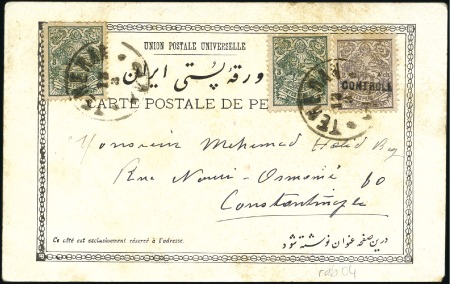 UNION POSTALE UNIVERSELLE
ورقه پستی ایران
CARTE POSTALE DE PE
CONTROLE
TEHERAN
Monsieur Mehemed Halid Bey
Rue Nouri-Osmanié 60
Constantinople
Ce côté est exclusivement réservé à l'adresse.
درین صفحه عنوان نوشته شود